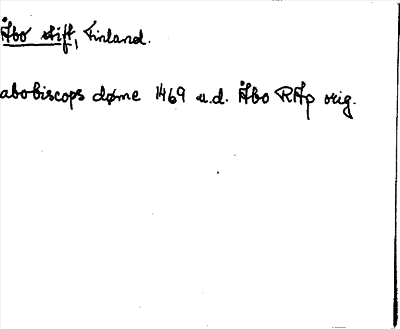 Åbo stift, Finland.
abobiscops døme 1469 u.d. Åbo RAp orig.